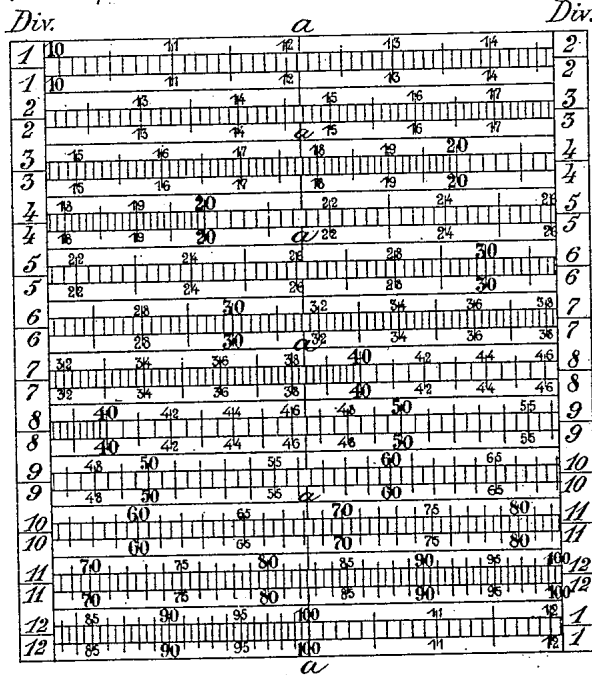 Div. a Div.
1 10 11 12 13 14 2
1 10 11 12 13 14 2
2 13 14 15 16 17 3
2 13 14 a 15 16 17 3
3 15 16 17 18 19 20 4
3 15 16 17 18 19 20 4
4 18 19 20 22 24 26 5
4 18 19 20 a 22 24 26 5
5 22 24 26 28 30 6
5 22 24 26 28 30 6
6 28 30 32 34 36 38 7
6 28 30 a 32 34 36 38 7
7 32 34 36 38 40 42 44 46 8
7 32 34 36 38 40 42 44 46 8
8 40 42 44 46 48 50 55 9
8 40 42 44 46 48 50 55 9
9 48 50 55 60 65 10
9 48 50 55 a 60 65 10
10 60 65 70 75 80 11
10 60 65 70 75 80 11
11 70 75 80 85 90 95 100 12
11 70 75 80 85 90 95 100 12
12 85 90 95 100 11 12 1
12 85 90 95 100 11 12 1
a